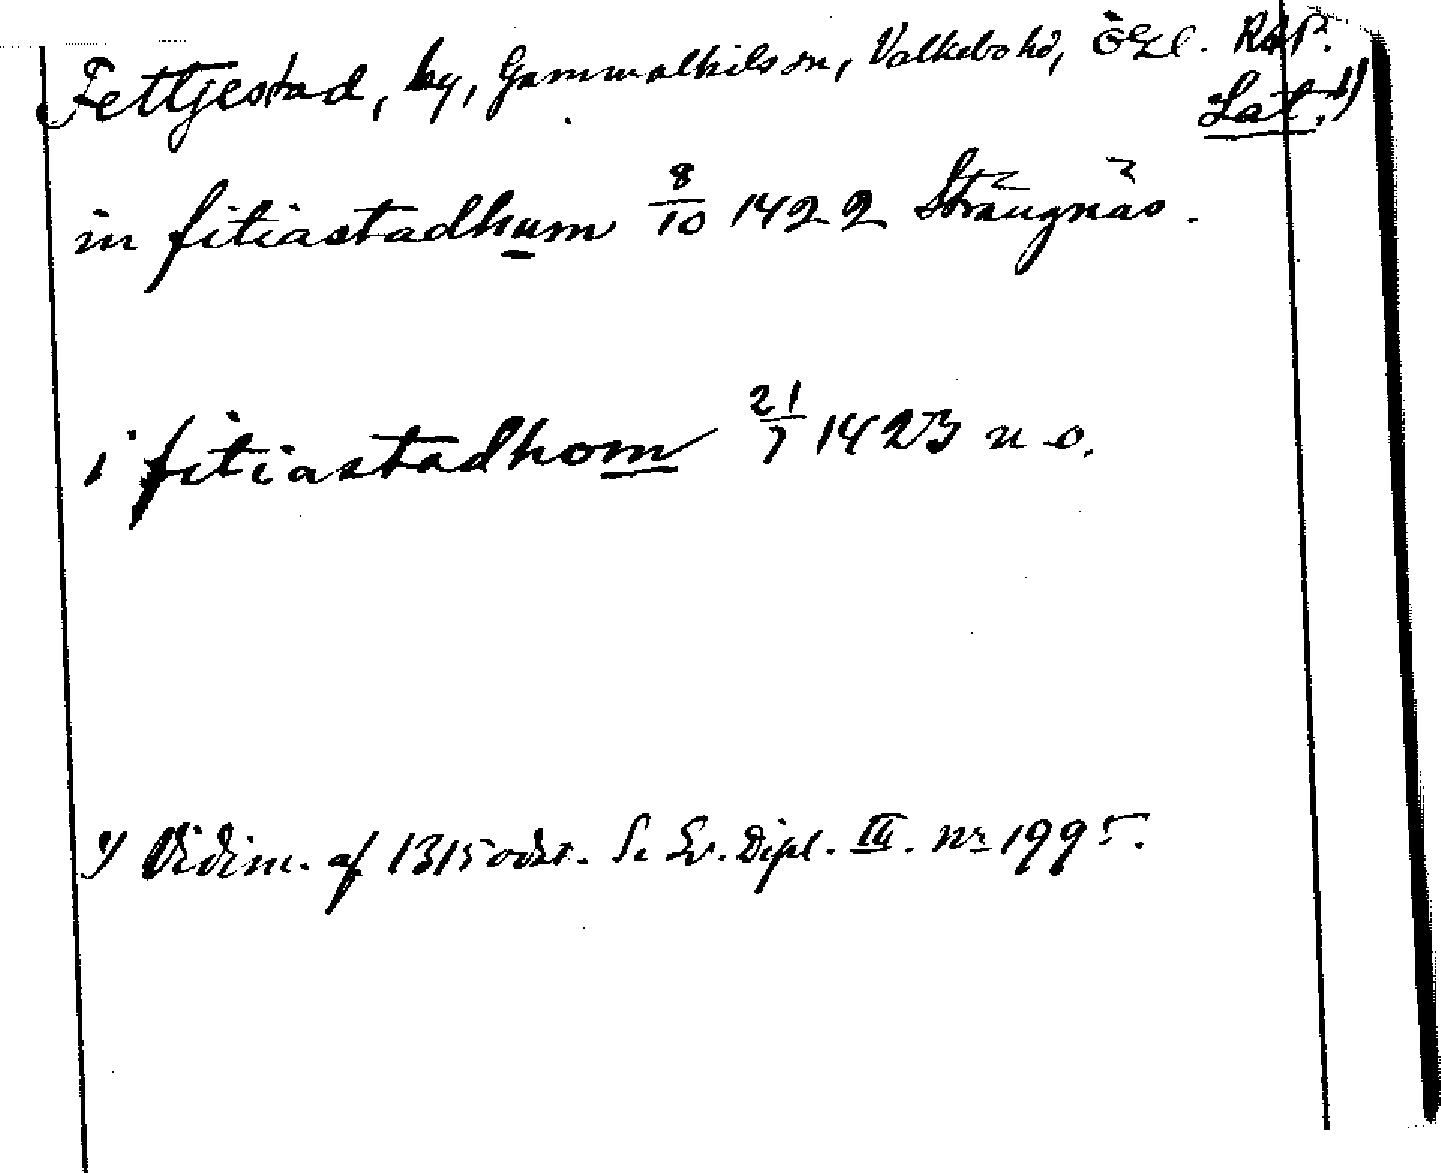 Fettjestad, by, Gammalkils sn, Valkebo hd, Ögl. RAP.
Lat. 1)
in fitiastadhum 8/10 1422 Strängnäs.
i fitiastadhom 21/7 1423 u o.
1) Vidim. af 1315 odat. S. Sv. Dipl. III. nr 1995.